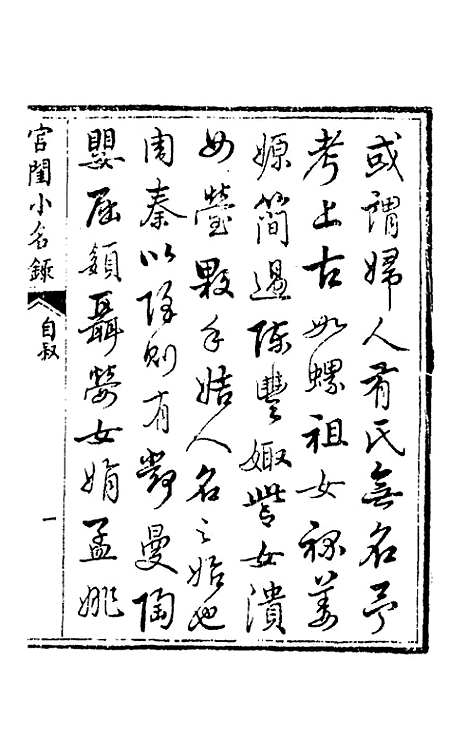 或謂婦人有氏無名予
考上古如螺祖女祿姜
嫄簡逷陳豐娵訾女潰
女瑩敤手姞人名之始也
周秦以降則有鄧曼陶
嬰屈頟聶嫈女娟孟姚
宮閨小名錄
自叙
一